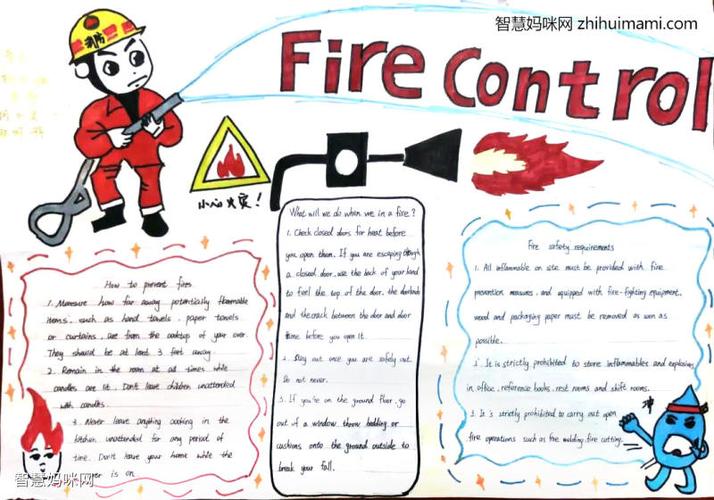 智慧妈咪网 zhihuimami.com
Fire Control
消防
小心火灾!
How to prevent fires
1. Measure how far away potentially flammable
items, such as hand towels, paper towels
or curtains, are from the cooktop of your over.
They should be at least 3 feet away.
2. Remain in the room at all times while
candles are lit. Don't leave children unattended
with candles.
3. Never leave anything cooking in the
kitchen unattended for any period of
time. Don't leave your home while the
is on.
What will we do when we in a fire?
1. Check closed doors for heat before
you open them. If you are escaping through
a closed door, use the back of your hand
to feel the top of the door, the doorknob
and the crack between the door and door
frame before you open it.
2. Stay out once you are safely out.
Do not never.
3. If you're on the ground floor, go
out of a window, throw bedding or
cushions onto the ground outside to
break your fall.
Fire safety requirements
1. All inflammable on site must be provided with fire
prevention measures, and equipped with fire-fighting equipment,
wood and packaging paper must be removed as well as
possible.
2. It is strictly prohibited to store inflammables and explosives
in office, reference books, rest rooms and shift rooms.
3. It's strictly prohibited to carry out open
fire operations such as fire welding, fire cutting.
智慧妈咪网